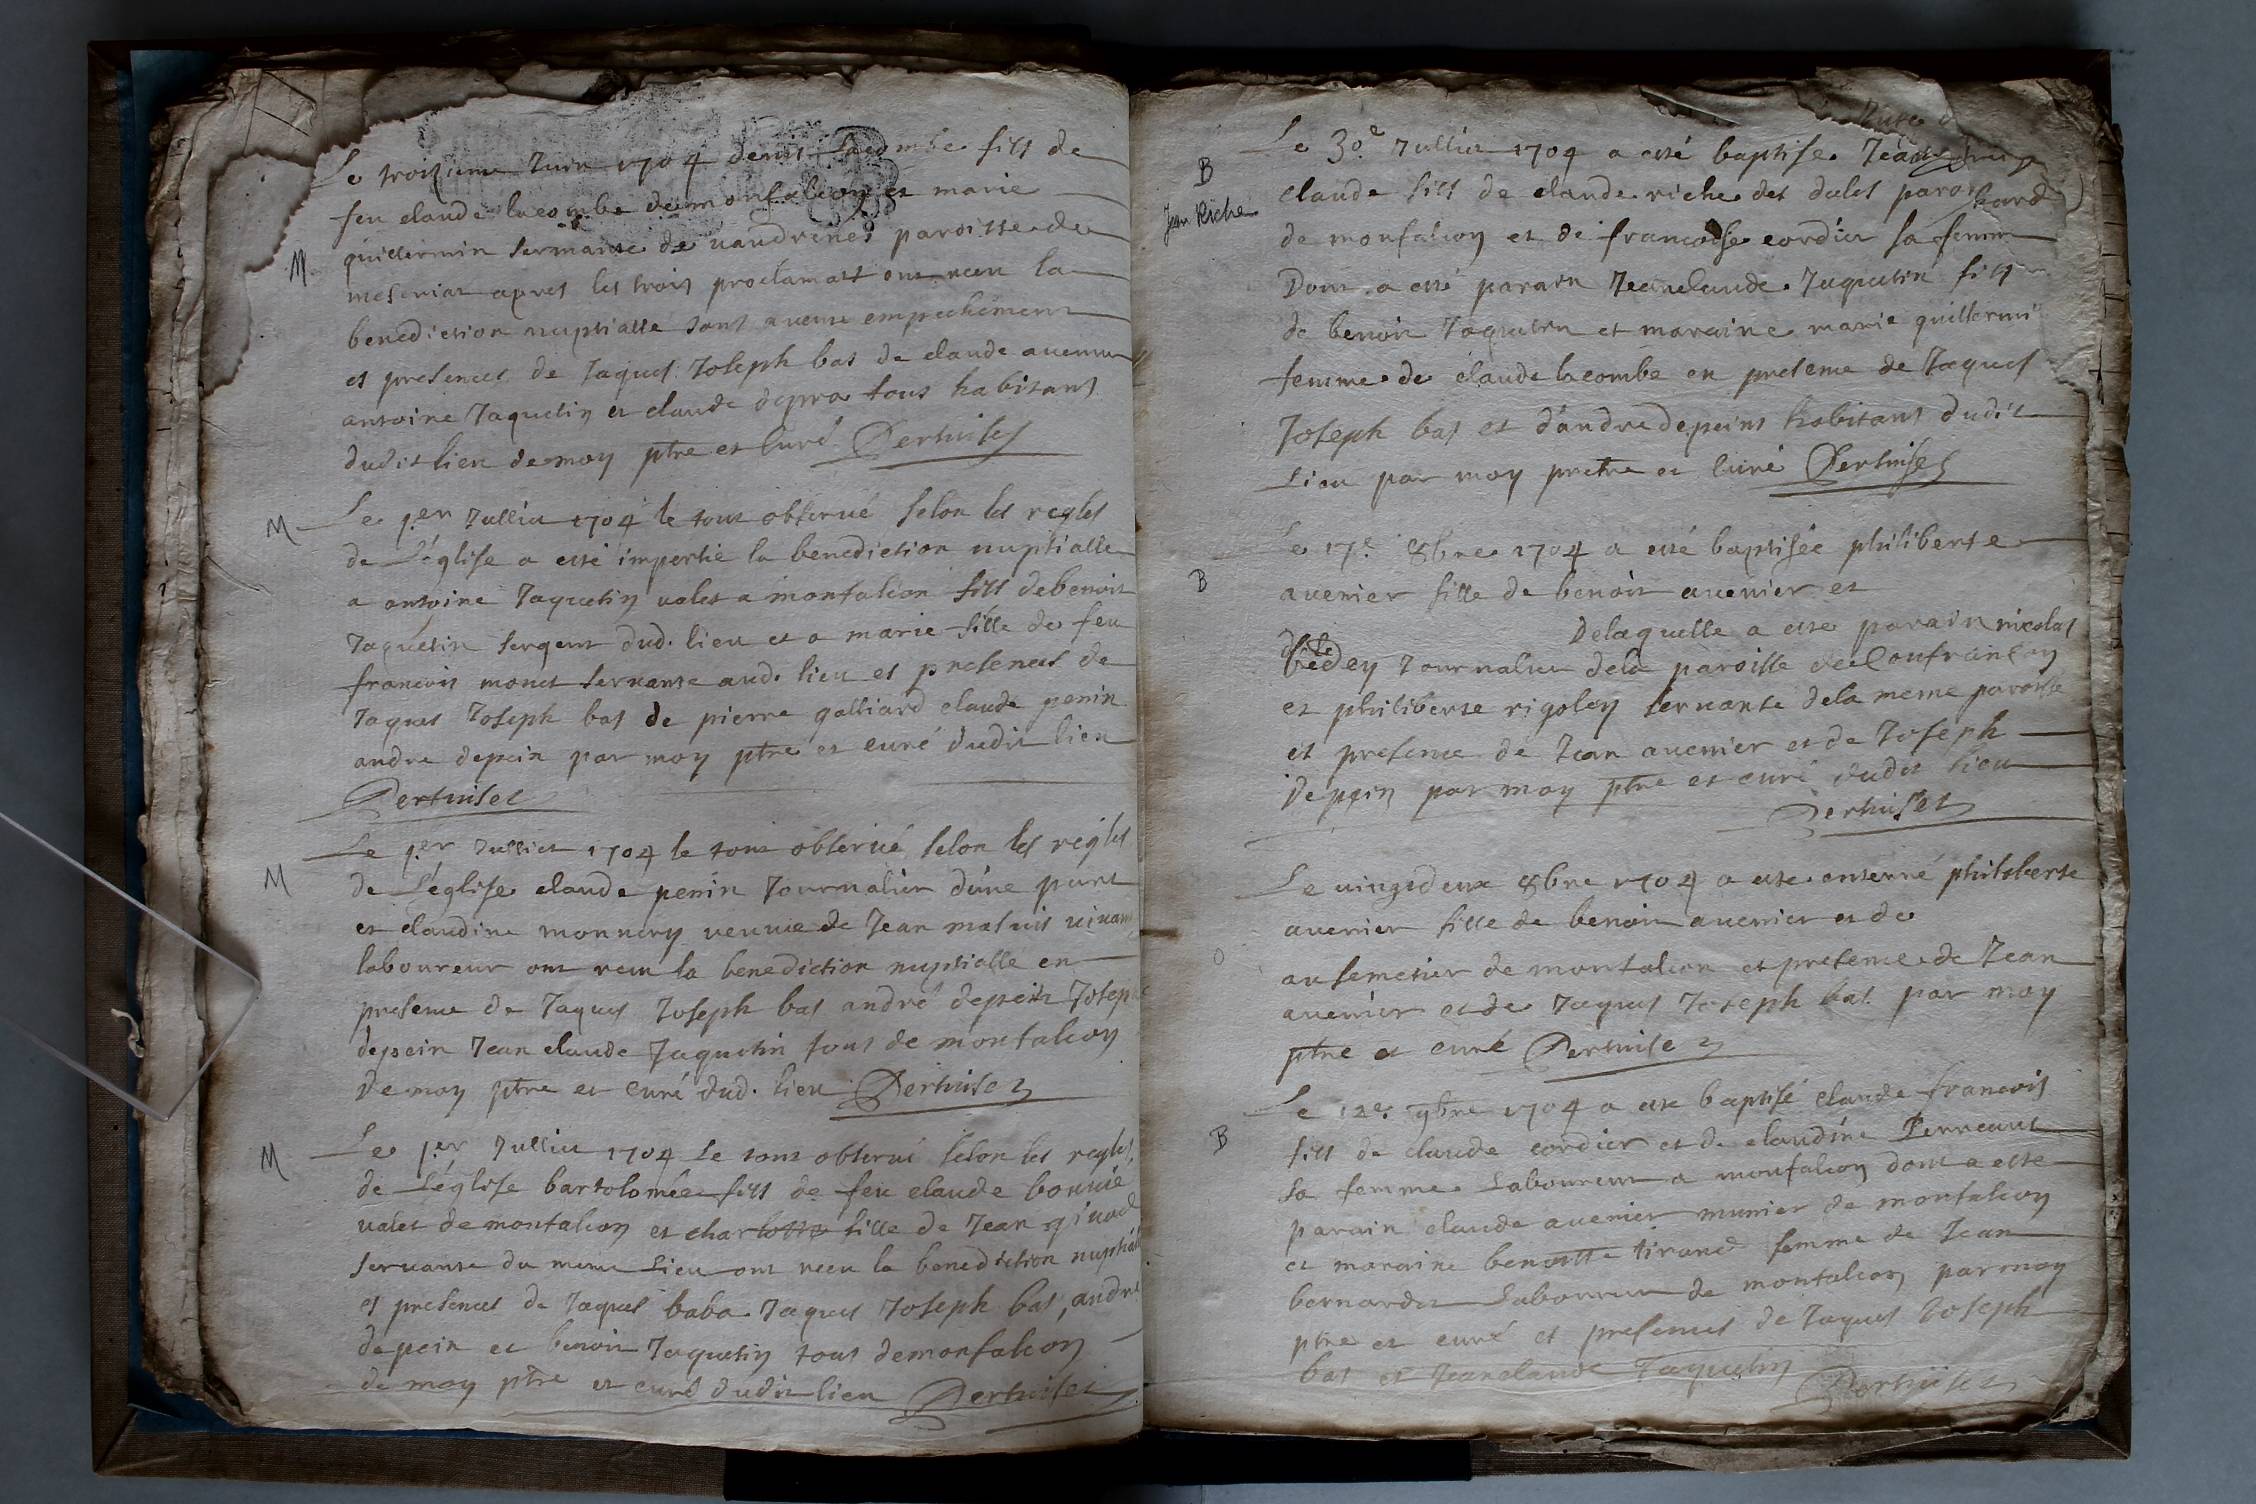 Le troizieme Juin 1704 denis Lacombe fils de
feu claude lacombe de monfalcon et marie
guillermin servante de vaudrenes paroisse de
M
meseriat apres les trois proclamats ont receu la
benediction nuptialle sans aucun empechement
es presences de Jaques Joseph bas de claude avenier
antoine Jaquetin et claude depra tous habitans
dudit lieu de moy ptre et Curé Pertuiset
M
Le 1er Jullier 1704 le tout observé selon les regles
de L'église a esté impertie la benediction nuptialle
a antoine Jaquetin valet a montfalcon fils de benoit
Jaquetin sergent dud. lieu et a marie fille de feu
francois monet servante aud. lieu es presences de
Jaques Joseph bas de pierre galliard claude penin
andre depein par moy ptre et curé dudit lieu
Pertuiset
Le 1er Jullier 1704 le tout observé selon les régles
M
de L'église claude penin Journalier d'une part
et claudine monnery veuve de Jean mathuis vivant
laboureur ont receu la benediction nuptialle en
presence de Jaques Joseph bas andré depein Joseph
depein Jean claude Jaquetin tous de monfalcon
De moy ptre et Curé dud. lieu Pertuiset
M
Le 1er Jullier 1704 Le tout observé selon les regles
de L'église bartolomée fils de feu claude bouvié
valet de montfalcon et charlotte fille de Jean
servante du meme Lieu ont receu la benediction nuptialle
es presences de Jaques baba Jaques Joseph bas, andré
depein et benoit Jaquetin tous de monfalcon
de moy ptre et curé dudit lieu Pertuiset
Le 30e Jullier 1704 a esté baptise Jean
B
Jean Riche
claude fils de claude riche des dales
de monfalcon et de francoise cordier sa femme
Dont a esté parain Jeanclaude Jaquetin fils
de benoit Jaquetin et maraine marie guillermi
femme de claude lacombe en presence de Jaques
Joseph bas et d'andre depeins habitans dudit
Lieu par moy pretre et Curé Pertuiset
Le 17e 8bre 1704 a esté baptisée philiberte
B
avenier fille de benoit avenier et
De laquelle a esté parain nicolas
bedey Journalier de la paroisse de Confrançon
et philiberte rigoley servante de la meme paroisse
et presence de Jean avenier et de Joseph
Depein par moy ptre et curé dudit lieu
Pertuiset
Le vingtdeux 8bre 1704 a esté enterré philiberte
avenier fille de benoit avenier et de
O
au semetier de montfalcon es presence de Jean
avenier et de Jaques Joseph bas par moy
ptre et curé Pertuiset
Le 12e 9bre 1704 a esté baptisé claude francois
B
fils de claude cordier et de claudine Perraut
sa femme Laboureur a monfalcon dont a este
parain claude avenier munier de monfalcon
et maraine benoitte tirand femme de Jean
bernardet Laboureur de montfalcon par moy
ptre et curé es presences de Jaques Joseph
bas et Jeanclaude Jaquetin Pertuiset